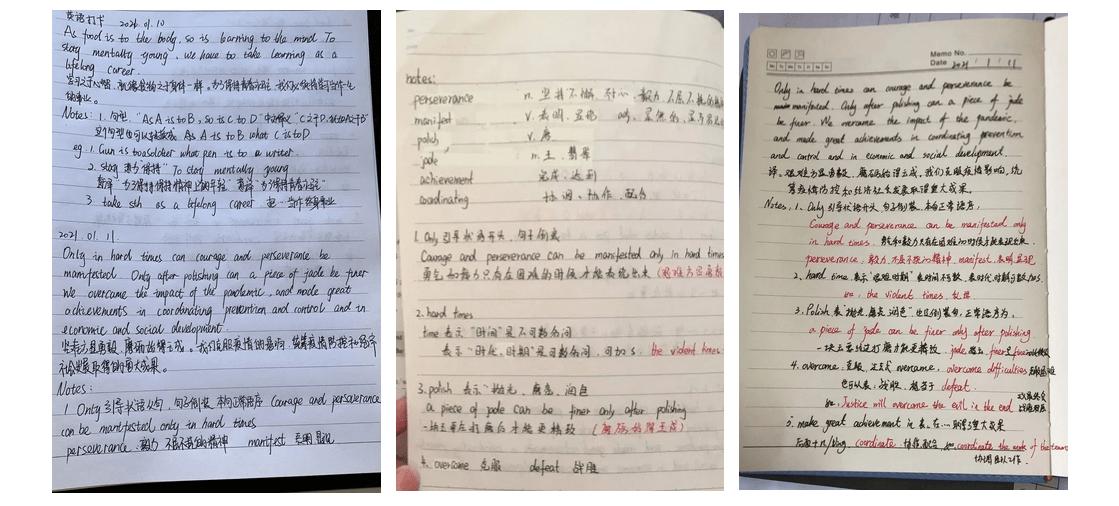 英语打卡 2021.01.10
As food is to the body, so is learning to the mind. To
stay mentally young, we have to take learning as a
lifelong career.
Notes: 1. 句型 "As A is to B, so is C to D"
As A is to B what C is to D
eg. 1. Gun is to a soldier what pen is to a writer.
2. stay 译为"保持" To stay mentally young
3. take sth as a lifelong career 把…当作终身事业
2021.01.11.
Only in hard times can courage and perseverance be
manifested. Only after polishing can a piece of jade be finer
We overcame the impact of the pandemic, and made great
achievements in coordinating prevention and control and in
economic and social development.
Notes:
1 Only 引导状语从句, 句子倒装, 本句正常语序 Courage and perseverance
can be manifested only in hard times
perseverance 毅力 不屈不挠的精神 manifest
notes:
perseverance n. 坚持不懈, 耐心, 毅力
manifest v. 表明, 显示
polish v. 磨
jade n. 玉, 翡翠
achievement 完成, 达到
coordinating 协调, 协作, 配合
1. Only 引导状语开头, 句子倒装
Courage and perseverance can be manifested only in hard times
勇气和毅力只有在困难的时候才能表现出来
2. hard times
time 表示"时间"是不可数名词
表示"时代, 时期"是可数名词, 可加 s. the violent times
3. polish 表示"抛光, 磨亮, 润色
a piece of jade can be finer only after polishing
一块玉要在打磨后才能更精致
4. overcome 克服 defeat 战胜
Memo No.
Date 2021 / 1 / 11
Mo Tu We Th Fr Sa Su
Only in hard times can courage and perseverance be
manifested. Only after polishing can a piece of jade
be finer. We overcame the impact of the pandemic,
and made great achievements in coordinating prevention
and control and in economic and social development.
译. 艰难方显勇毅, 磨砺始得玉成. 我们克服疫情影响, 统
筹疫情防控和经济社会发展取得重大成果.
Notes, 1、Only 引导状语开头, 句子倒装, 本句正常语序:
Courage and perseverance can be manifested only
in hard times. 勇气和毅力只有在困难的时候才能表现出来
perseverance, 毅力, 不屈不挠的精神. manifest, 表明, 显现
2、hard time 表示"艰难时期"
the violent times, 乱世
3、Polish 表"抛光, 磨亮, 润色". 也是倒装句, 正常语序为,
a piece of jade can be finer only after polishing
一块玉要经过打磨才能更精致. jade
4、overcome, 克服, overcame, overcome difficulties
也可以表: 战胜, 相当于 defeat.
Justice will overcome the evil in the end
5. make great achievement in 表, 在…取得了重大成果
后加 + n / Ving. coordinate, coordinate the work of the teams
协调团队工作.